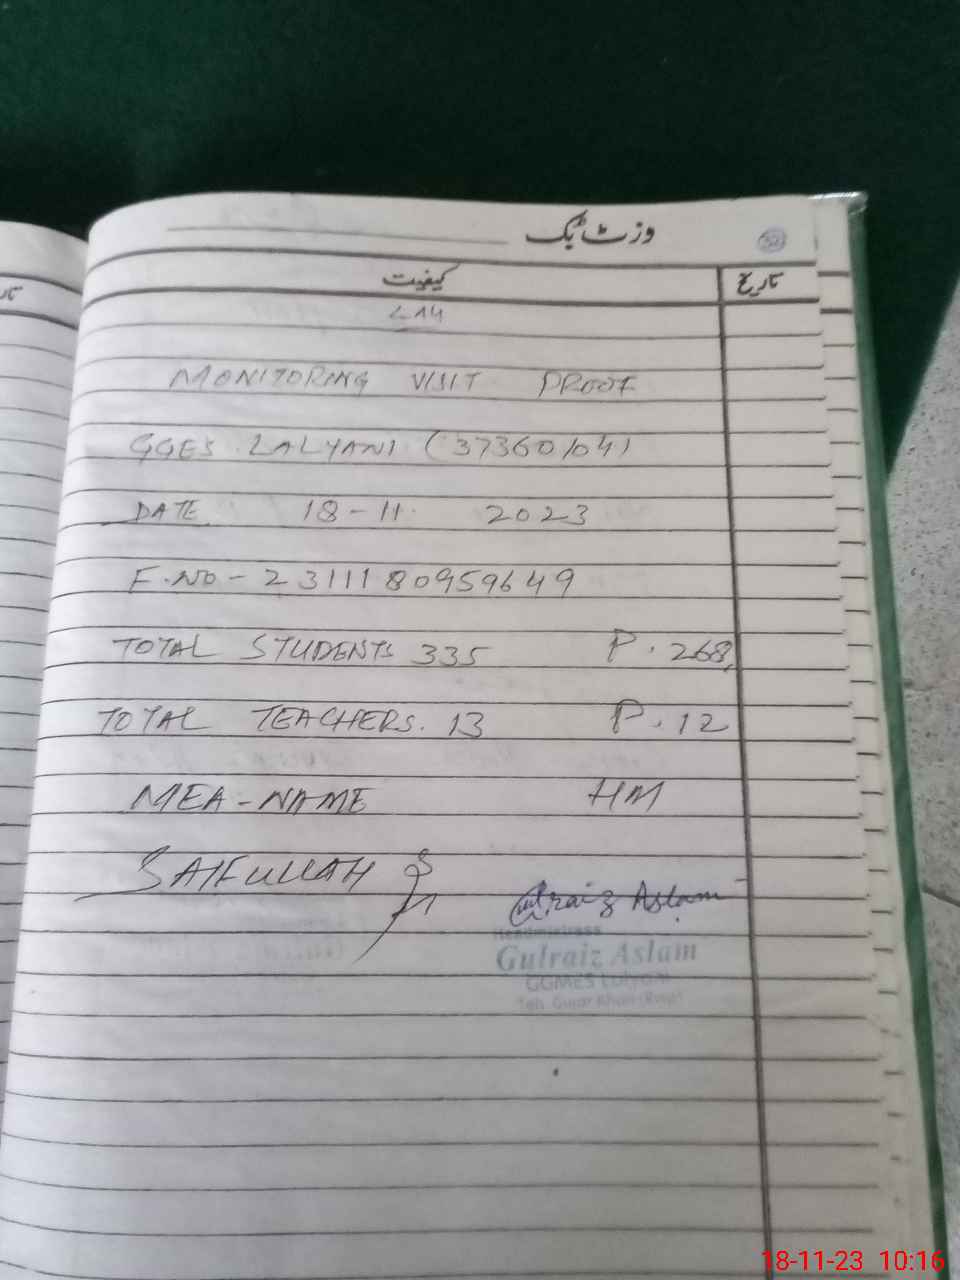 وزٹ بک
52
کیفیت
تاریخ
MONITORING VISIT PROOF
GGES. LALYANI (37360104)
DATE 18-11 2023
F.NO-231118095 9649
TOTAL STUDENTS 335 P. 268
TOTAL TEACHERS. 13 P. 12
MEA-NAME HM
SAIFULLAH
Gulraiz Aslam
Headmistress
Gulraiz Aslam
GGMES Lalyani
Teh. Gujar Khan (Rwp)
18-11-23 10:16